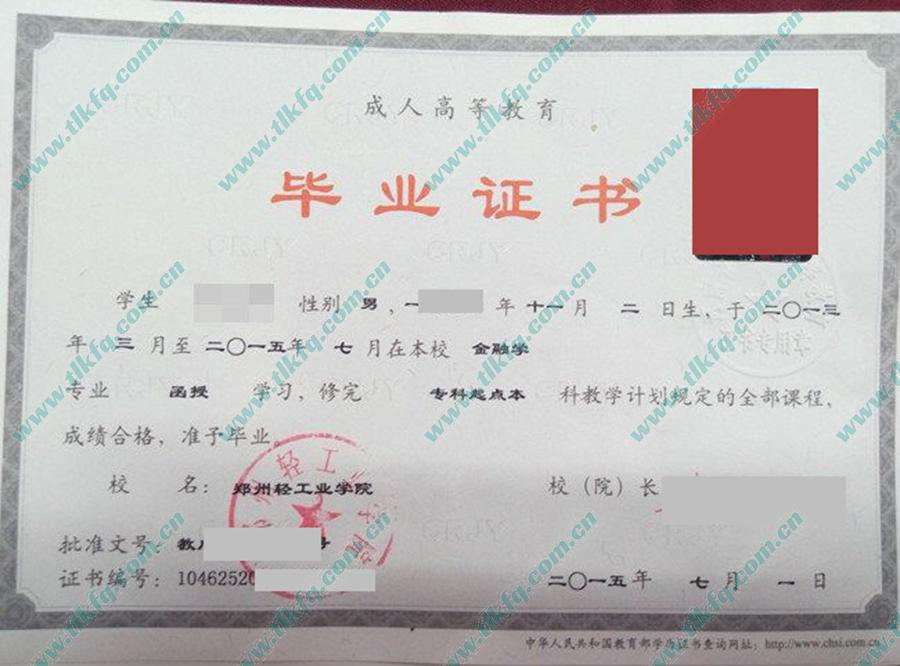 成人高等教育
毕业证书
学生 性别 男，一 年 十一 月 二 日生，于 二〇一三
年 三 月至 二〇一五年 七 月在本校 金融学
专业 函授 学习，修完 专科起点本 科教学计划规定的全部课程，
成绩合格，准予毕业。
校 名：郑州轻工业学院 校（院）长
批准文号：教
证书编号：10462520
二〇一五年 七 月 一 日
中华人民共和国教育部学历证书查询网址：http://www.chsi.com.cn
www.tlkfq.com.cn